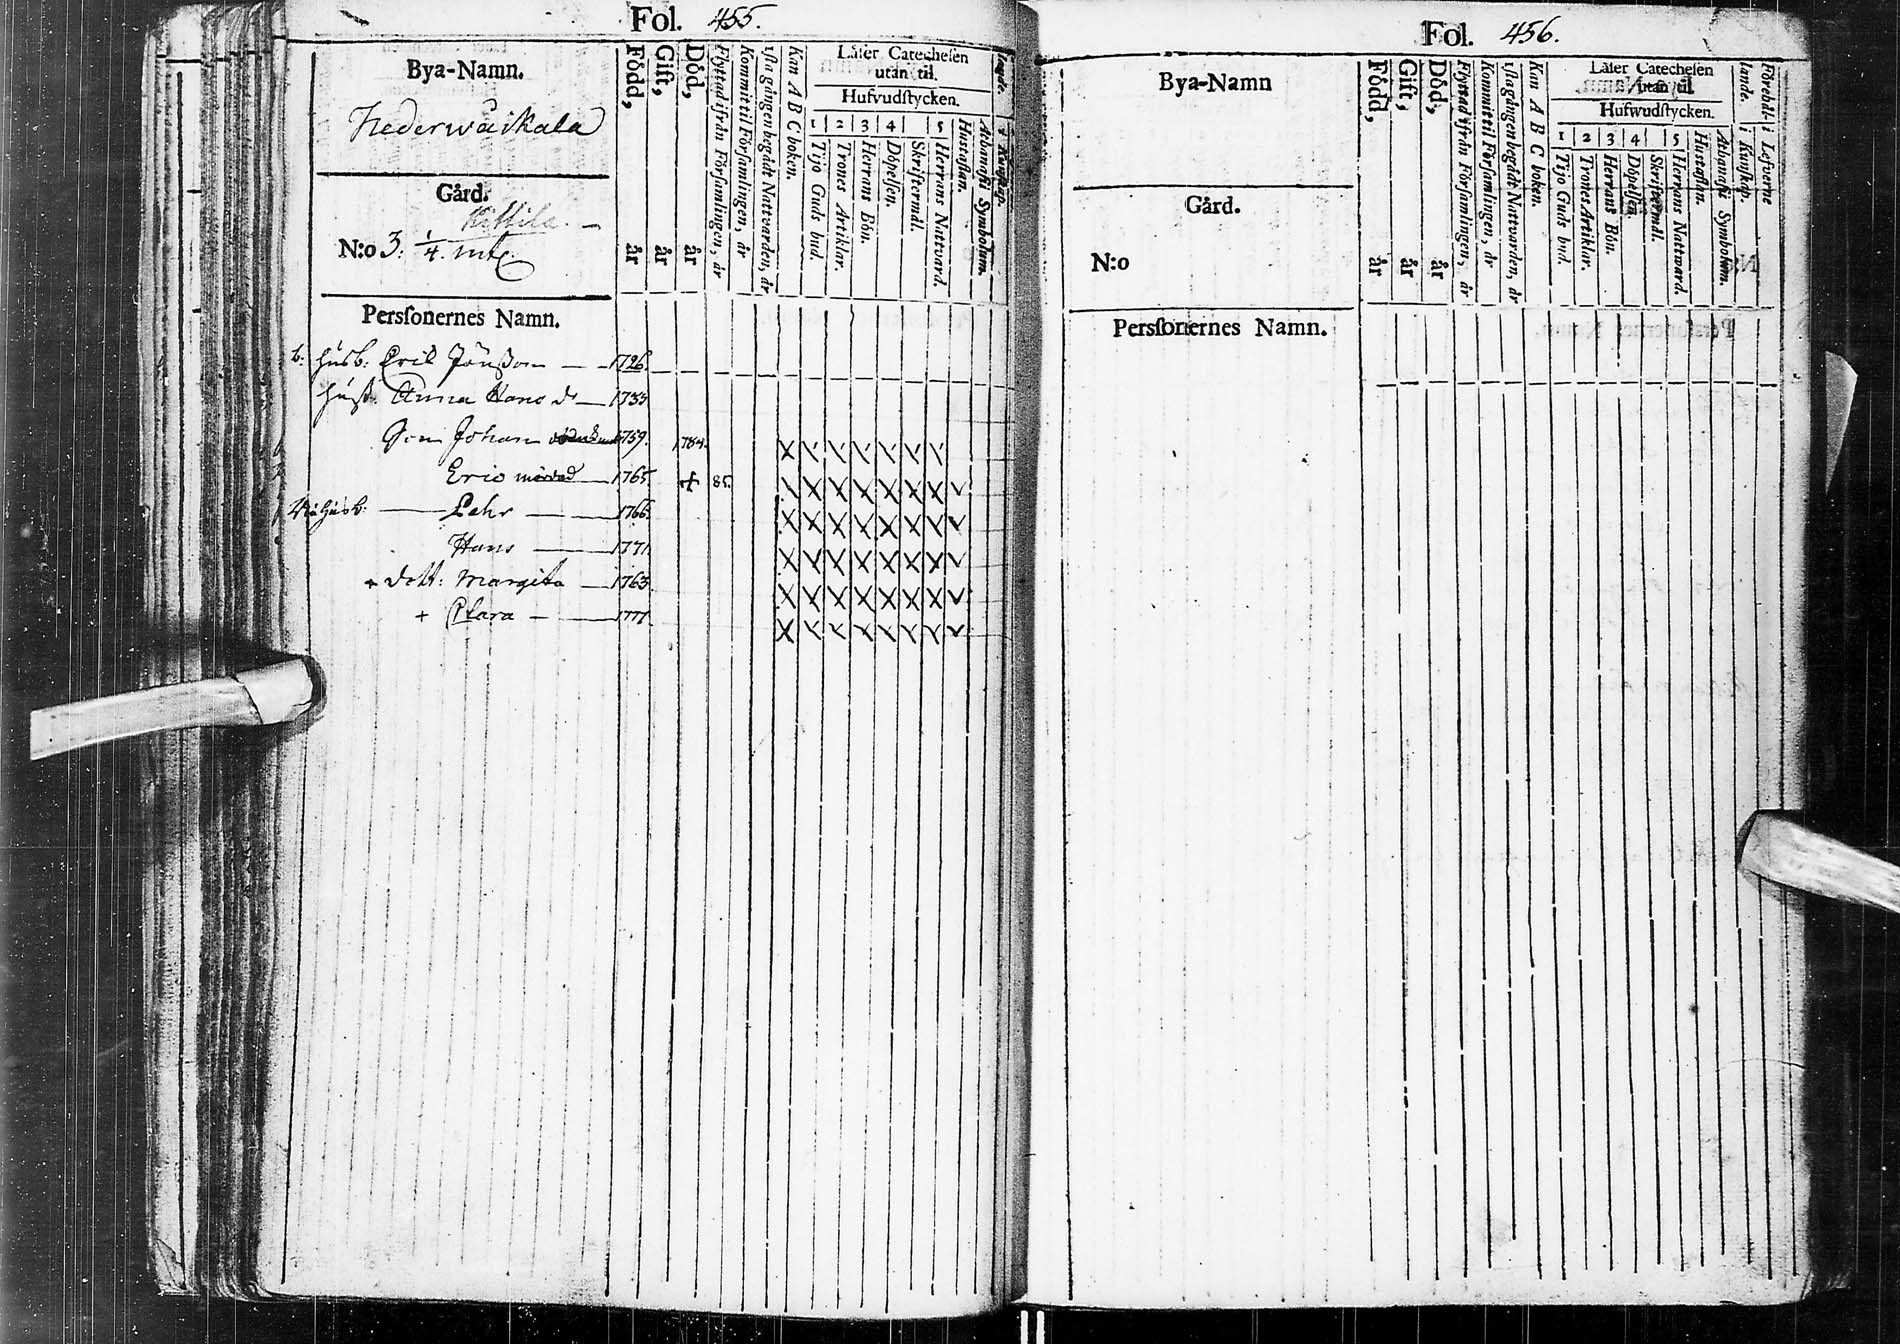 Fol. 455.
Bya-Namn.
Nederwäikala
Gård.
Kittila.
N:o 3. 1/4. mtl.
Född, år
Gift, år
Död, år
Flyttad ifrån Församlingen, år
Kommit til Församlingen, år
1sta gången begådt Nattvarden, år
Kan A B C boken.
Läser Catechesen
utan til.
Hufvudstycken.
1 2 3 4 5
Tijo Guds bud.
Trones Artiklar.
Herrans Bön.
Döpelsen.
Skriftermål.
Herrans Nattvard.
Hustaflan.
Athanasii Symbolum.
i Kunskap.
Personernes Namn.
b. Husb: Eric Jönsson 1726.
Hust: Anna Hans dr 1735
Son Johan 1759. 1784.
Eric 1765. + 85.
Husb: Pehr 1766.
Hans 1771.
+ dott: Margita 1763.
+ Clara 1777.
Fol. 456.
Bya-Namn
Gård.
N:o
Född, år
Gift, år
Död, år
Flyttad ifrån Församlingen, år
Kommit til Församlingen, år
1sta gången begådt Nattvarden, år
Kan A B C boken.
Läser Catechesen
utan til.
Hufwudstycken.
1 2 3 4 5
Tijo Guds bud.
Trones Artiklar.
Herrans Bön.
Döpelsen.
Skriftermål.
Herrans Nattvard.
Hustaflan.
Athanasii Symbolum.
lande. i Kunskap.
Förehål- i Lefverne
Personernes Namn.